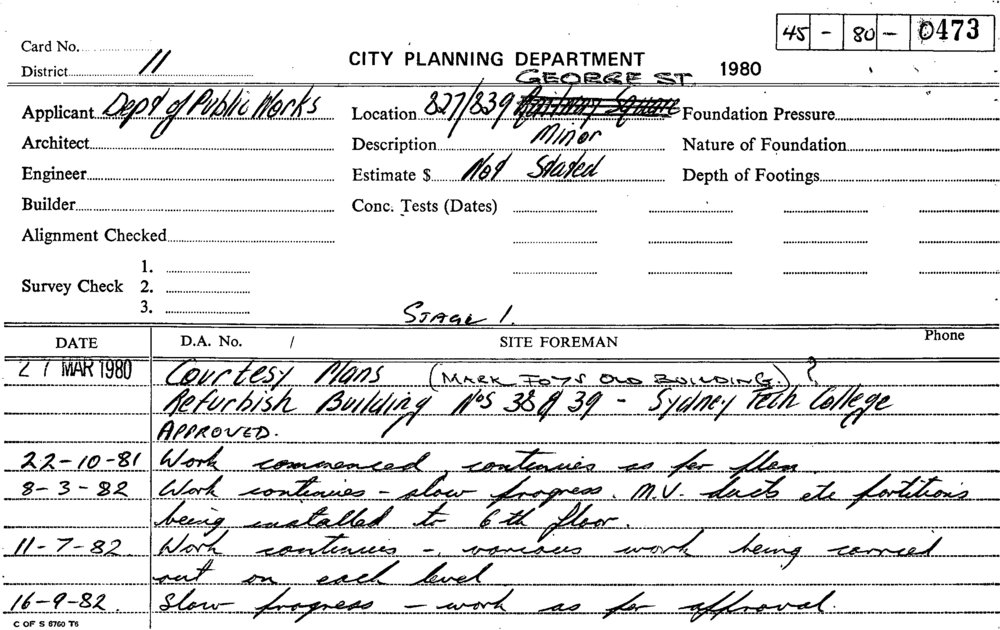 45 - 80 - 0473
Card No.
District 11
CITY PLANNING DEPARTMENT
1980
GEORGE ST.
Applicant Dept of Public Works
Location 827/839 Railway Square
Foundation Pressure
Architect
Description Minor
Nature of Foundation
Engineer
Estimate $ Not Stated
Depth of Footings
Builder
Conc. Tests (Dates)
Alignment Checked
1.
Survey Check 2.
3.
STAGE 1.
DATE D.A. No. / SITE FOREMAN Phone
27 MAR 1980 Courtesy Plans (MARK FOYS OLD BUILDING.) ?
Refurbish Building Nos 38 & 39 - Sydney Tech College
APPROVED.
22-10-81 Work commenced, continues as per plan.
8-3-82 Work continues - slow progress. M.V. ducts etc partitions
being installed to 6th floor.
11-7-82. Work continues - various work being carried
out on each level
16-9-82. Slow progress - work as per approval.
C OF S 6760 T6